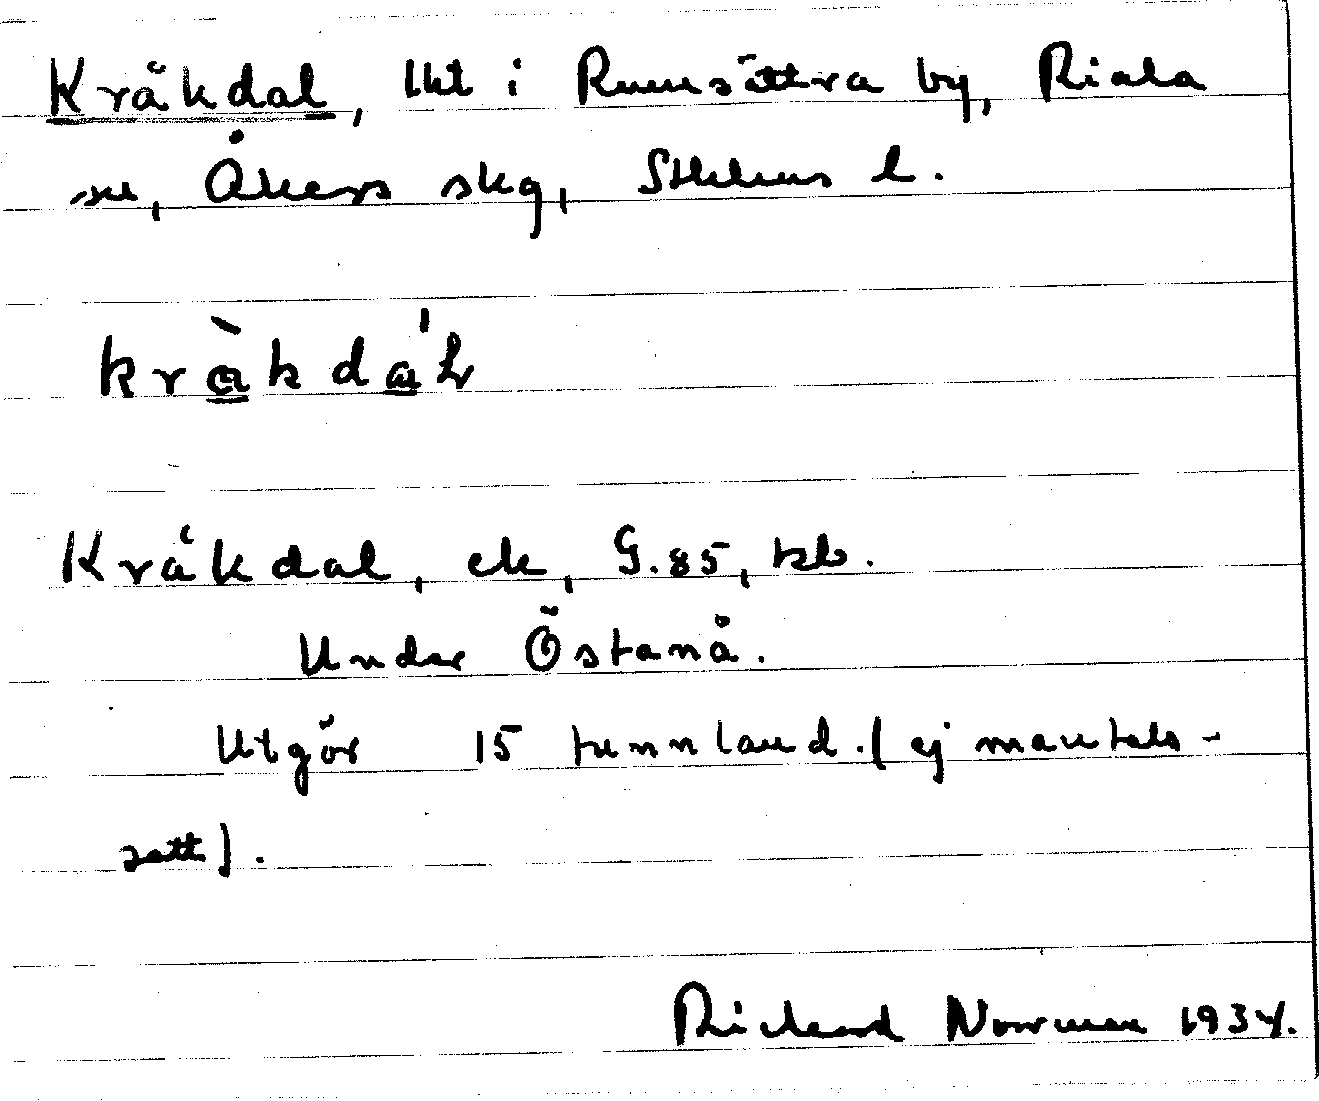 Kråkdal, lht i Rumsättra by, Riala
sn, Åkers skg, Sthlms l.
kràkdáL
Kråkdal, ek, G.85, kb.
Under Östanå.
Utgör 15 tunnland. (ej mantals-
satt).
Rickard Norman 1934.